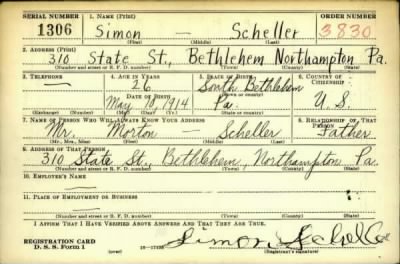 SERIAL NUMBER 1. NAME (Print) ORDER NUMBER
1306 Simon — Scheller 3830
(First) (Middle) (Last)
2. ADDRESS (Print)
310 State St., Bethlehem Northampton Pa.
(Number and street or R. F. D. number) (Town) (County) (State)
3. TELEPHONE 4. AGE IN YEARS 5. PLACE OF BIRTH 6. COUNTRY OF CITIZENSHIP
— 26 South Bethlehem
DATE OF BIRTH (Town or county)
May 10, 1914 Pa. U.S.
(Exchange) (Number) (Mo.) (Day) (Yr.) (State or country)
7. NAME OF PERSON WHO WILL ALWAYS KNOW YOUR ADDRESS 8. RELATIONSHIP OF THAT PERSON
Mr. Morton — Scheller Father
(Mr., Mrs., Miss) (First) (Middle) (Last)
9. ADDRESS OF THAT PERSON
310 State St., Bethlehem, Northampton Pa.
(Number and street or R. F. D. number) (Town) (County) (State)
10. EMPLOYER'S NAME
—
11. PLACE OF EMPLOYMENT OR BUSINESS
—
(Number and street or R. F. D. number) (Town) (County) (State)
I AFFIRM THAT I HAVE VERIFIED ABOVE ANSWERS AND THAT THEY ARE TRUE.
REGISTRATION CARD
D. S. S. Form 1 (over) Simon Scheller
(Registrant's signature)